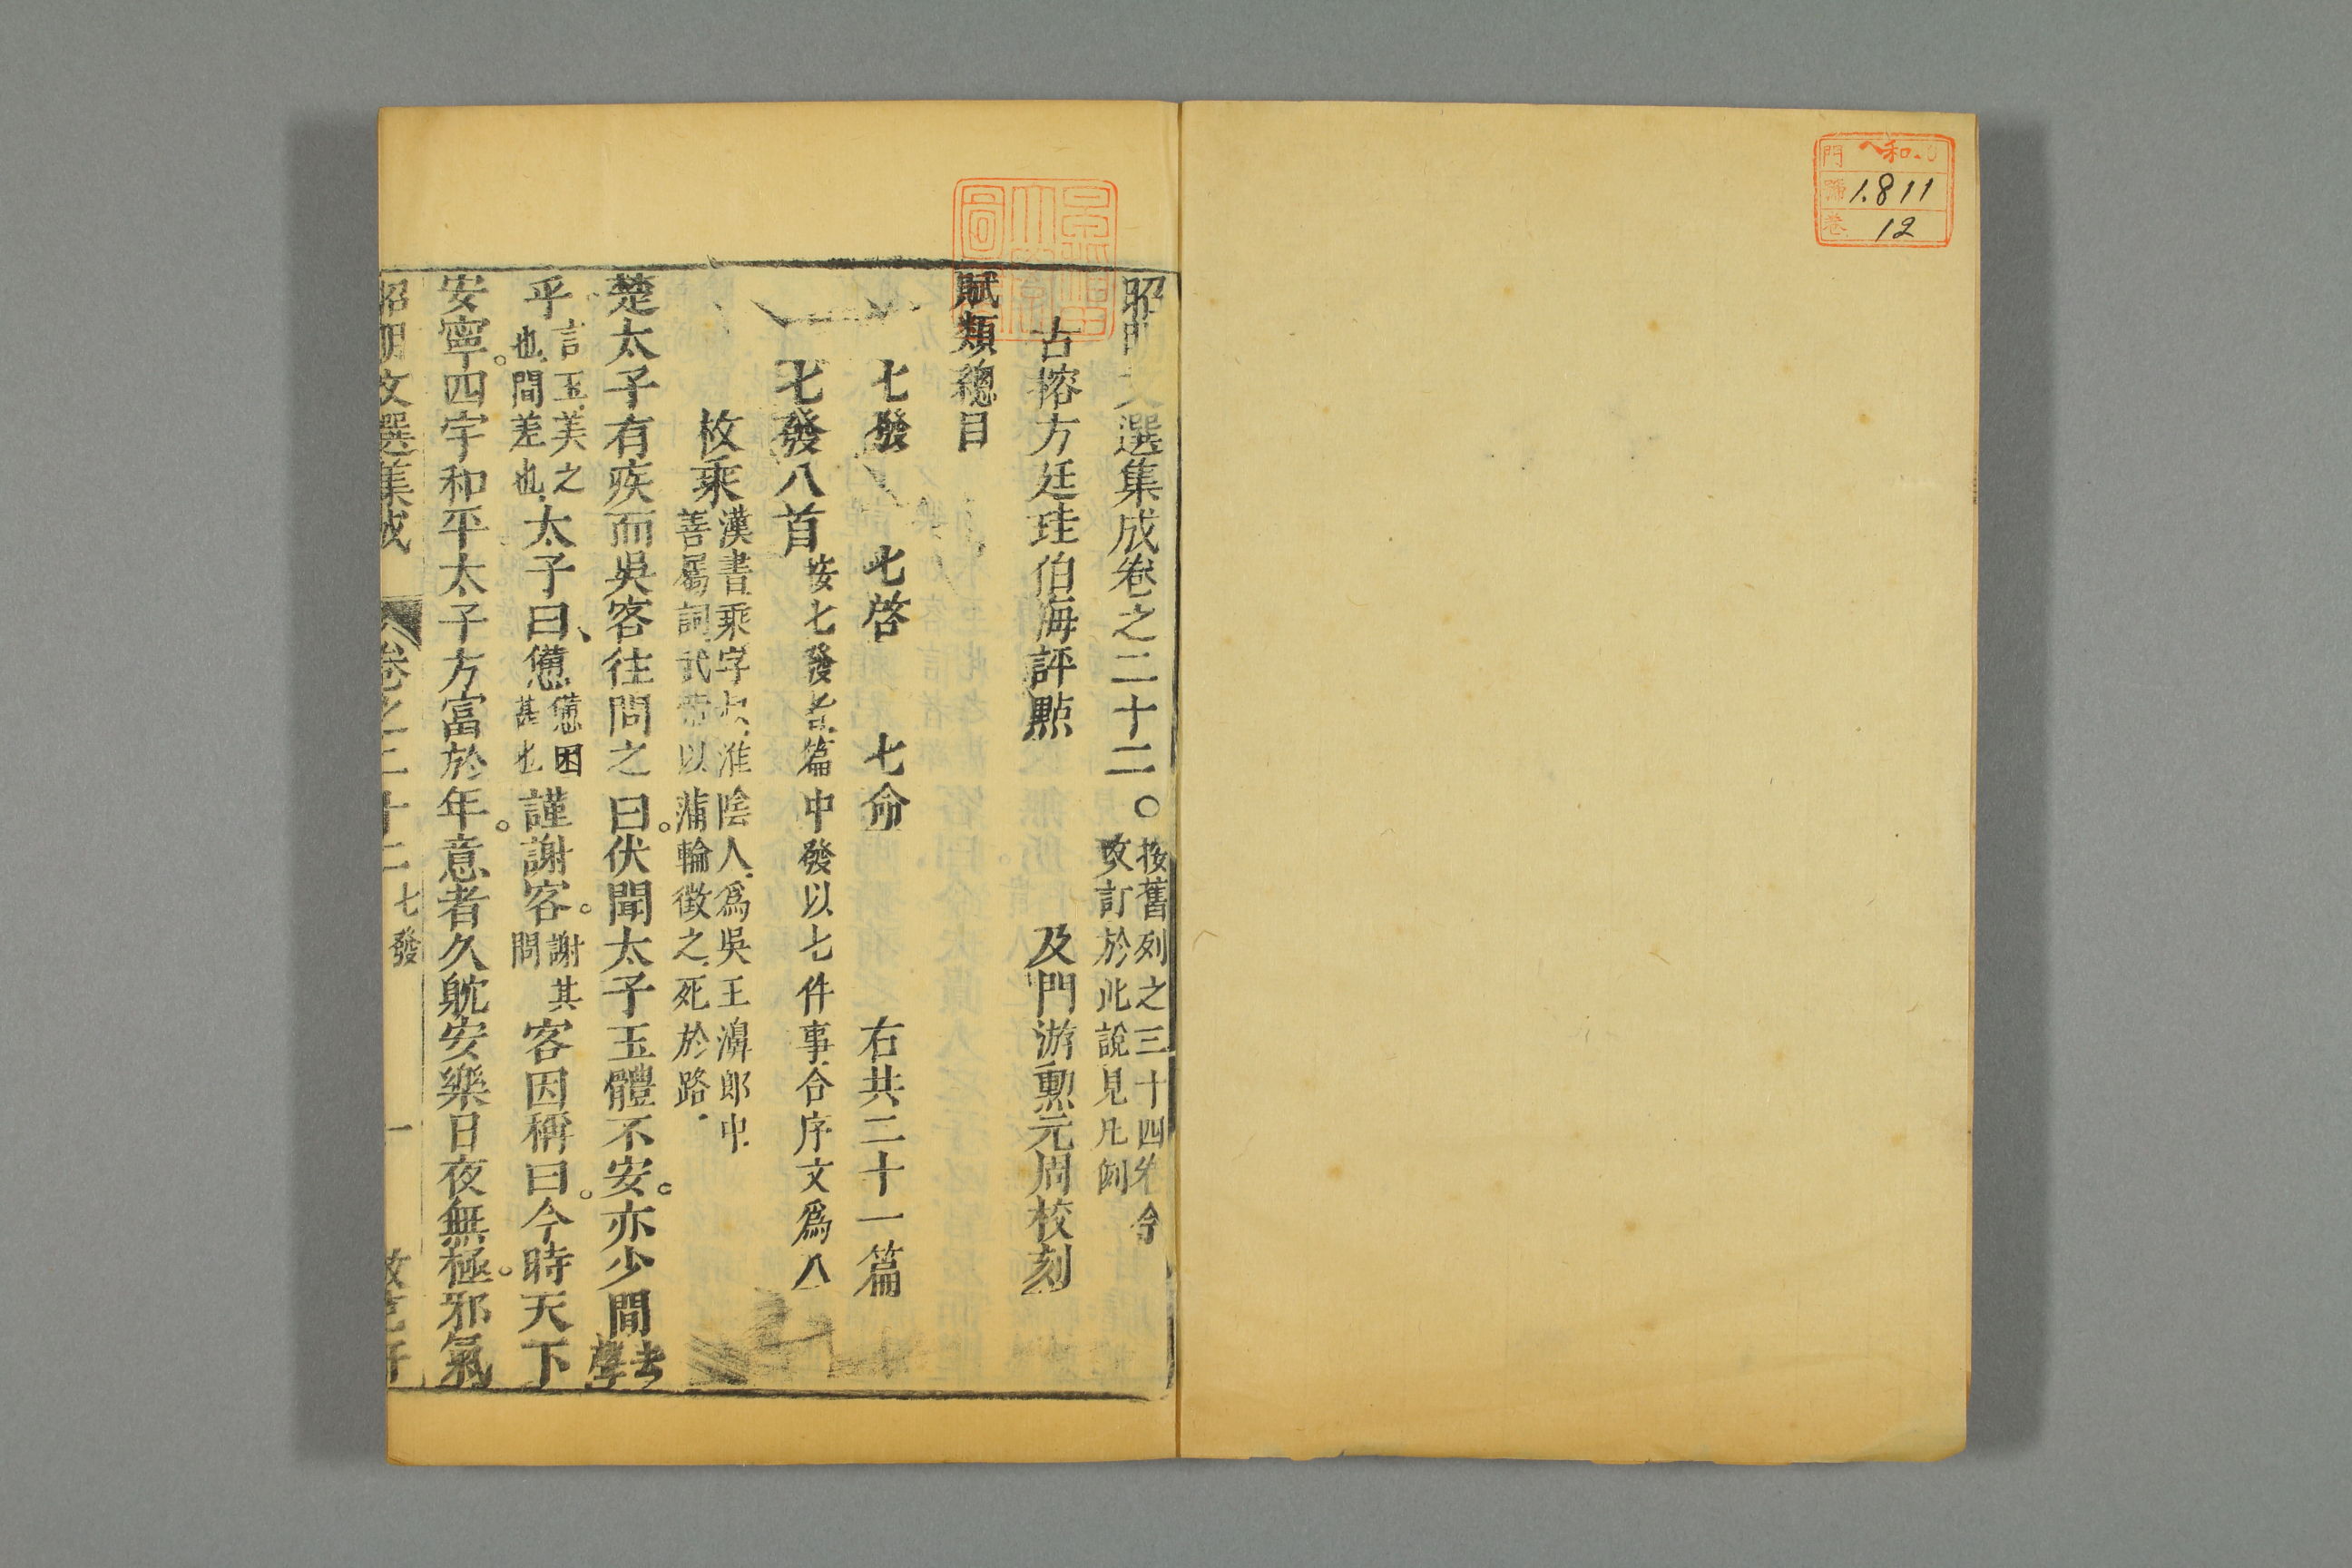 門 和
號 1.811
卷 12
昭明文選集成卷之二十二〇按舊列之三十四卷今
改訂於此說見凡例
古榕方廷珪伯海評點 及門游勲元周校刻
賦類總目
七發 七啓 七命 右共二十一篇
七發八首按七發名篇中發以七件事合序文爲八
枚乘漢書乘字叔淮陰人爲吳王濞郎中
善屬詞武帝以蒲輪徴之死於路
楚太子有疾而吳客往問之曰。伏聞太子玉體不安。亦少間
乎言玉美之
也間差也太子曰、憊憊困
甚也謹謝客。謝其
問客因稱曰。今時天下
安寧。四宇和平太子方富於年。意者久躭安樂日夜無極。邪氣
昭明文選集成 卷之二十二 七發 一